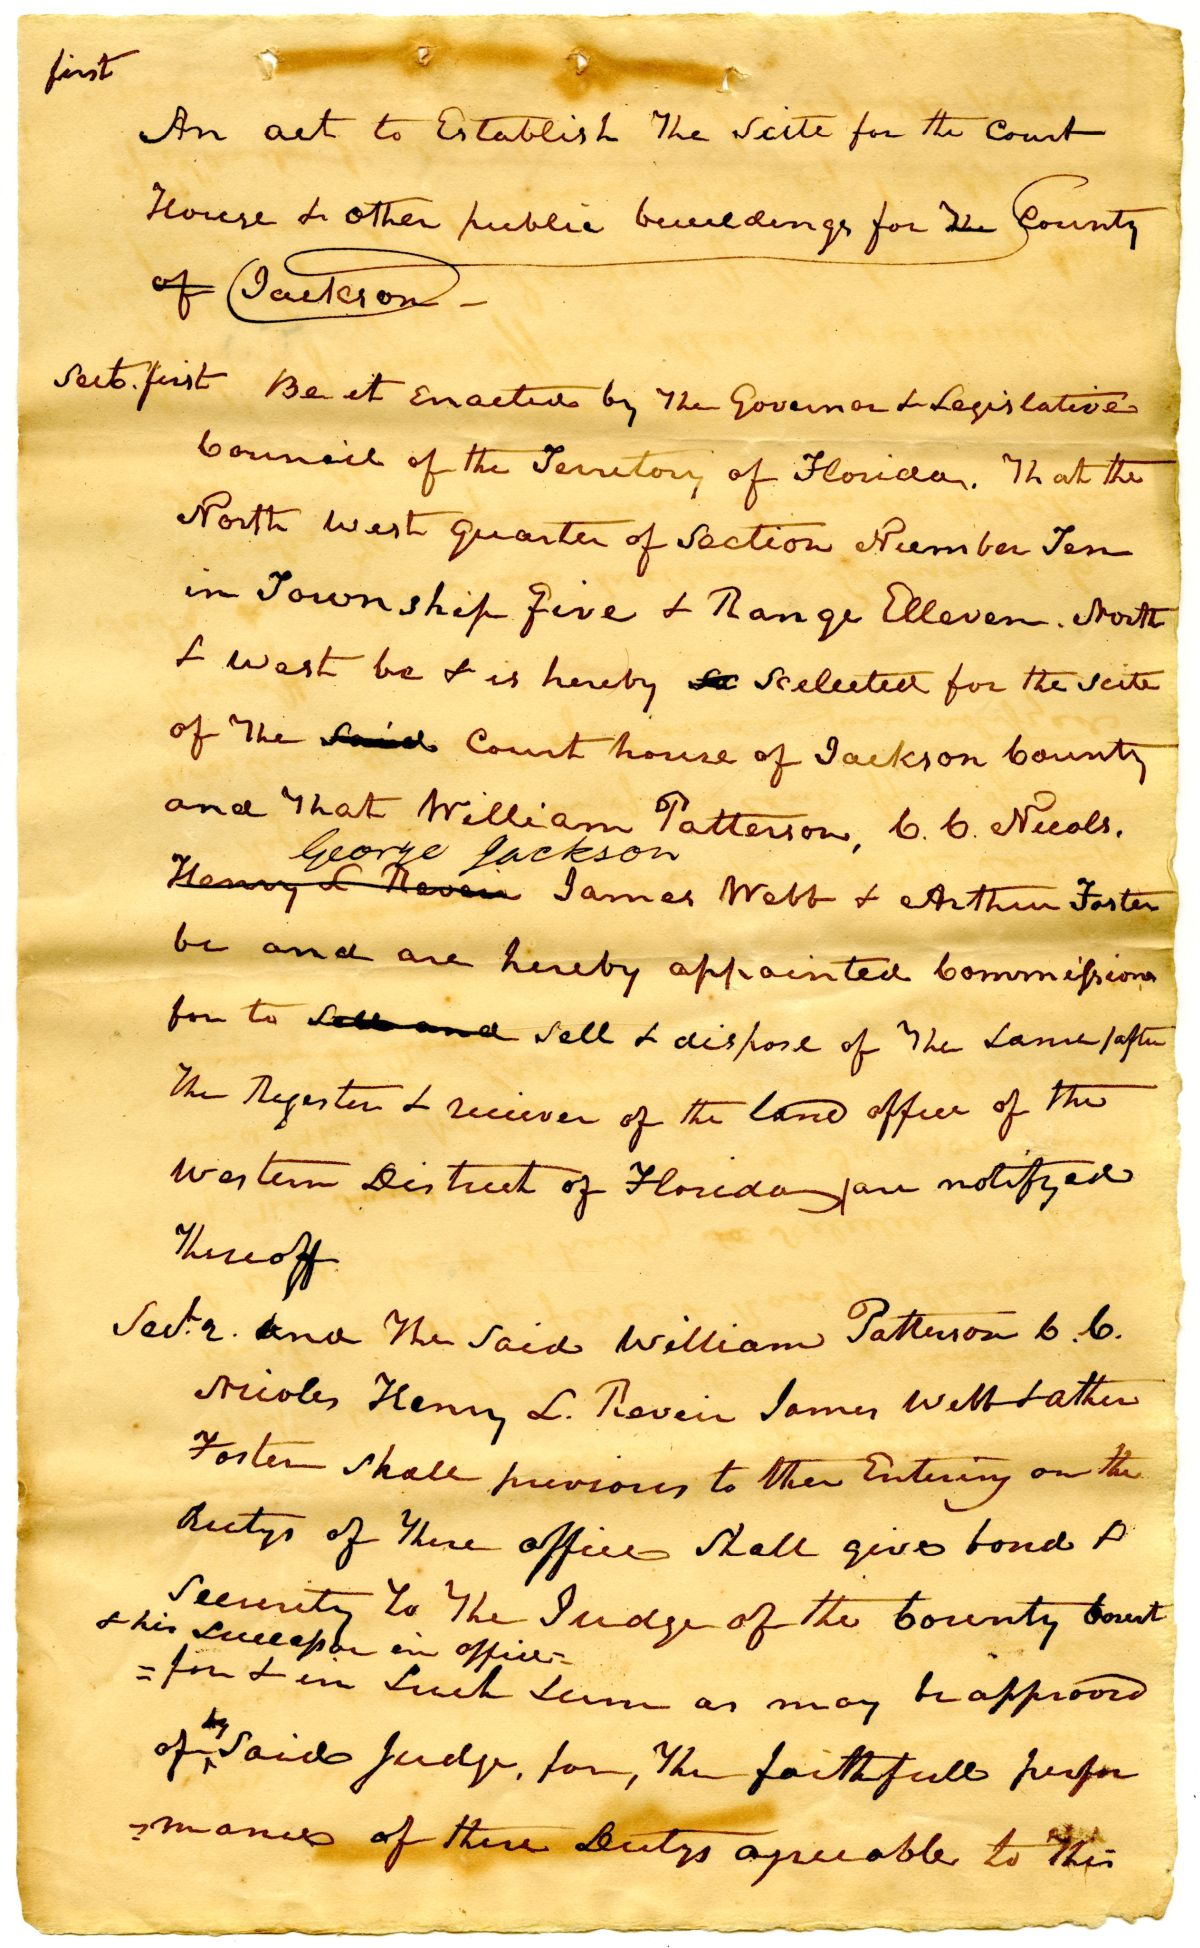 first
An act to Establish The Scite for the Court
House & other public buuildings for The County
of Jackson –
Sect. first Be it Enacted by The Governor & Legislative
Council of the Territory of Florida. That the
North West quarter of Section Number Ten
in Township five & Range Elleven. North
& West be & is hereby se Scelected for the scite
of The said Court house of Jackson County
and That William Patterson, C. C. Nicols.
George Jackson
Henry L Reveir James Webb & Arthur Foster
be and are hereby appointed Commissions
for to sell and sell & dispose of The same/after
The Regester & reciever of the land office of the
Western District of Florida/are notifyed
Thereoff
Sect. 2. And The Said William Patterson C. C.
Nicoles Henry L. Reveir James Webb & Arther
Foster shall previous to ther Entering on the
Dutys of There office shall give bond &
Security To The Judge of the County Court
& his Successor in office =
= for & in such sum as may be approved
by
of ^ Said Judge, for, The faithfull perfor
= mance of there Dutys agreeable to This